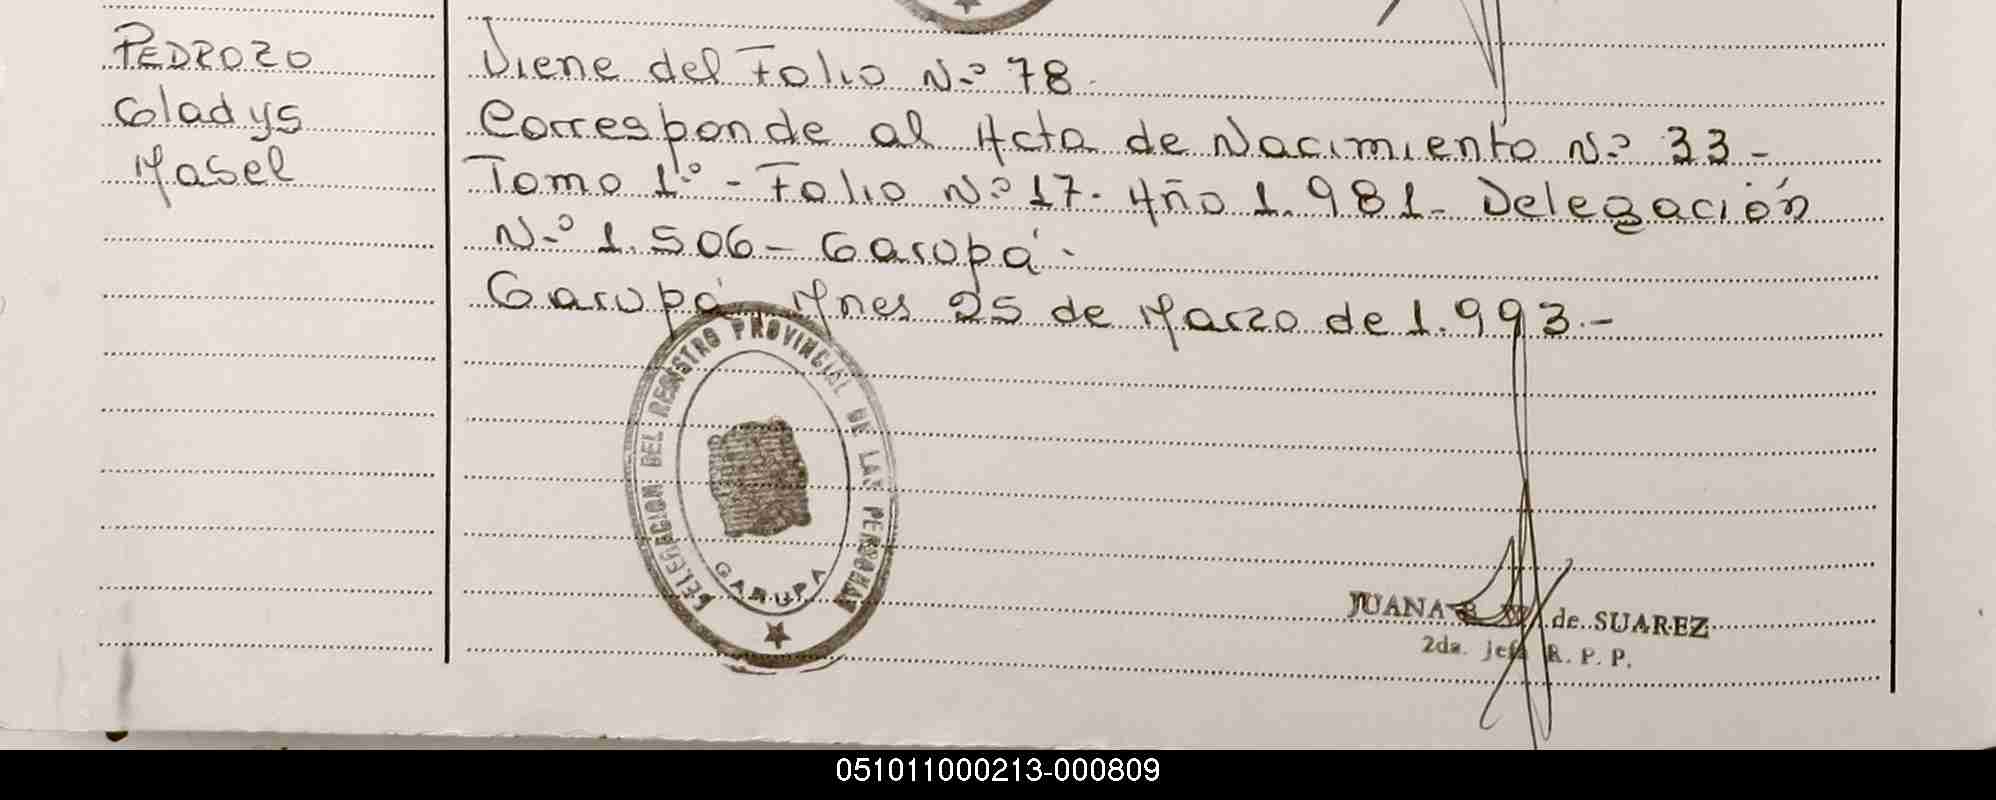 PEDROZO
Gladys
Masel
Viene del Folio N.º 78.
Corresponde al Acta de Nacimiento N.º 33 -
Tomo 1.º - Folio N.º 17. Año 1.981 - Delegación
N.º 1.506 - Garupá.
Garupá Mnes 25 de Marzo de 1.993.-
DELEGACION DEL REGISTRO PROVINCIAL DE LAS PERSONAS
GARUPA
JUANA de SUAREZ
2da. jefa R. P. P.
051011000213-000809